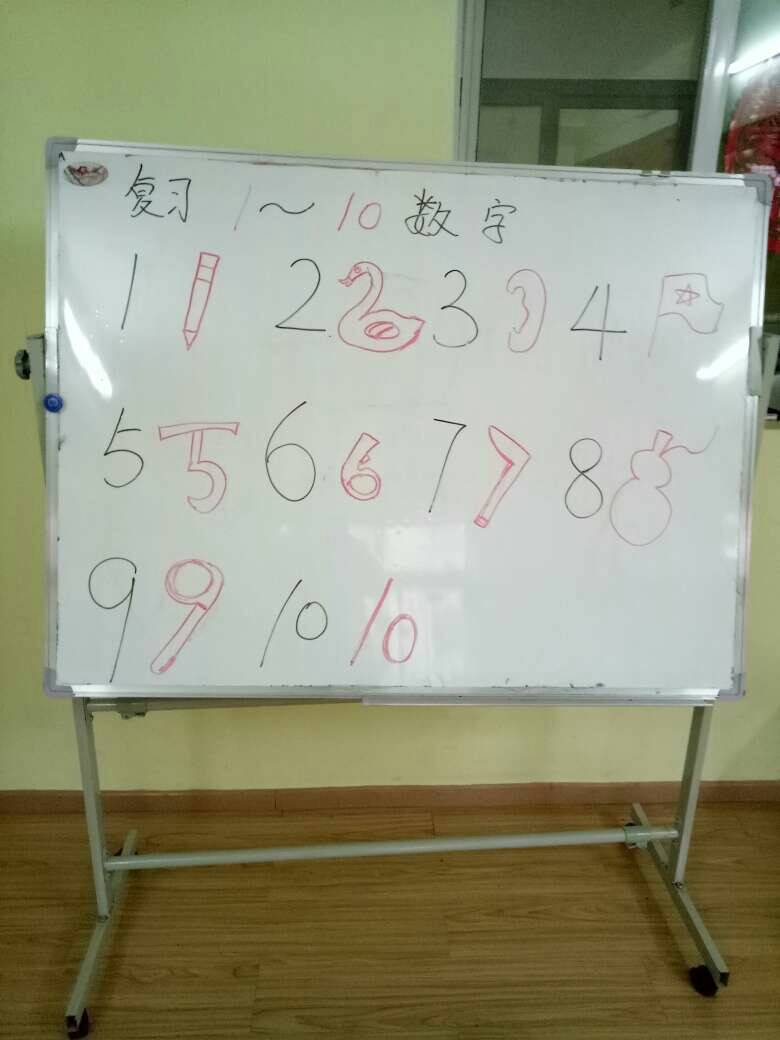 复习 1～10 数字
1 2 3 3 4
5 5 6 6 7 8
9 10 10